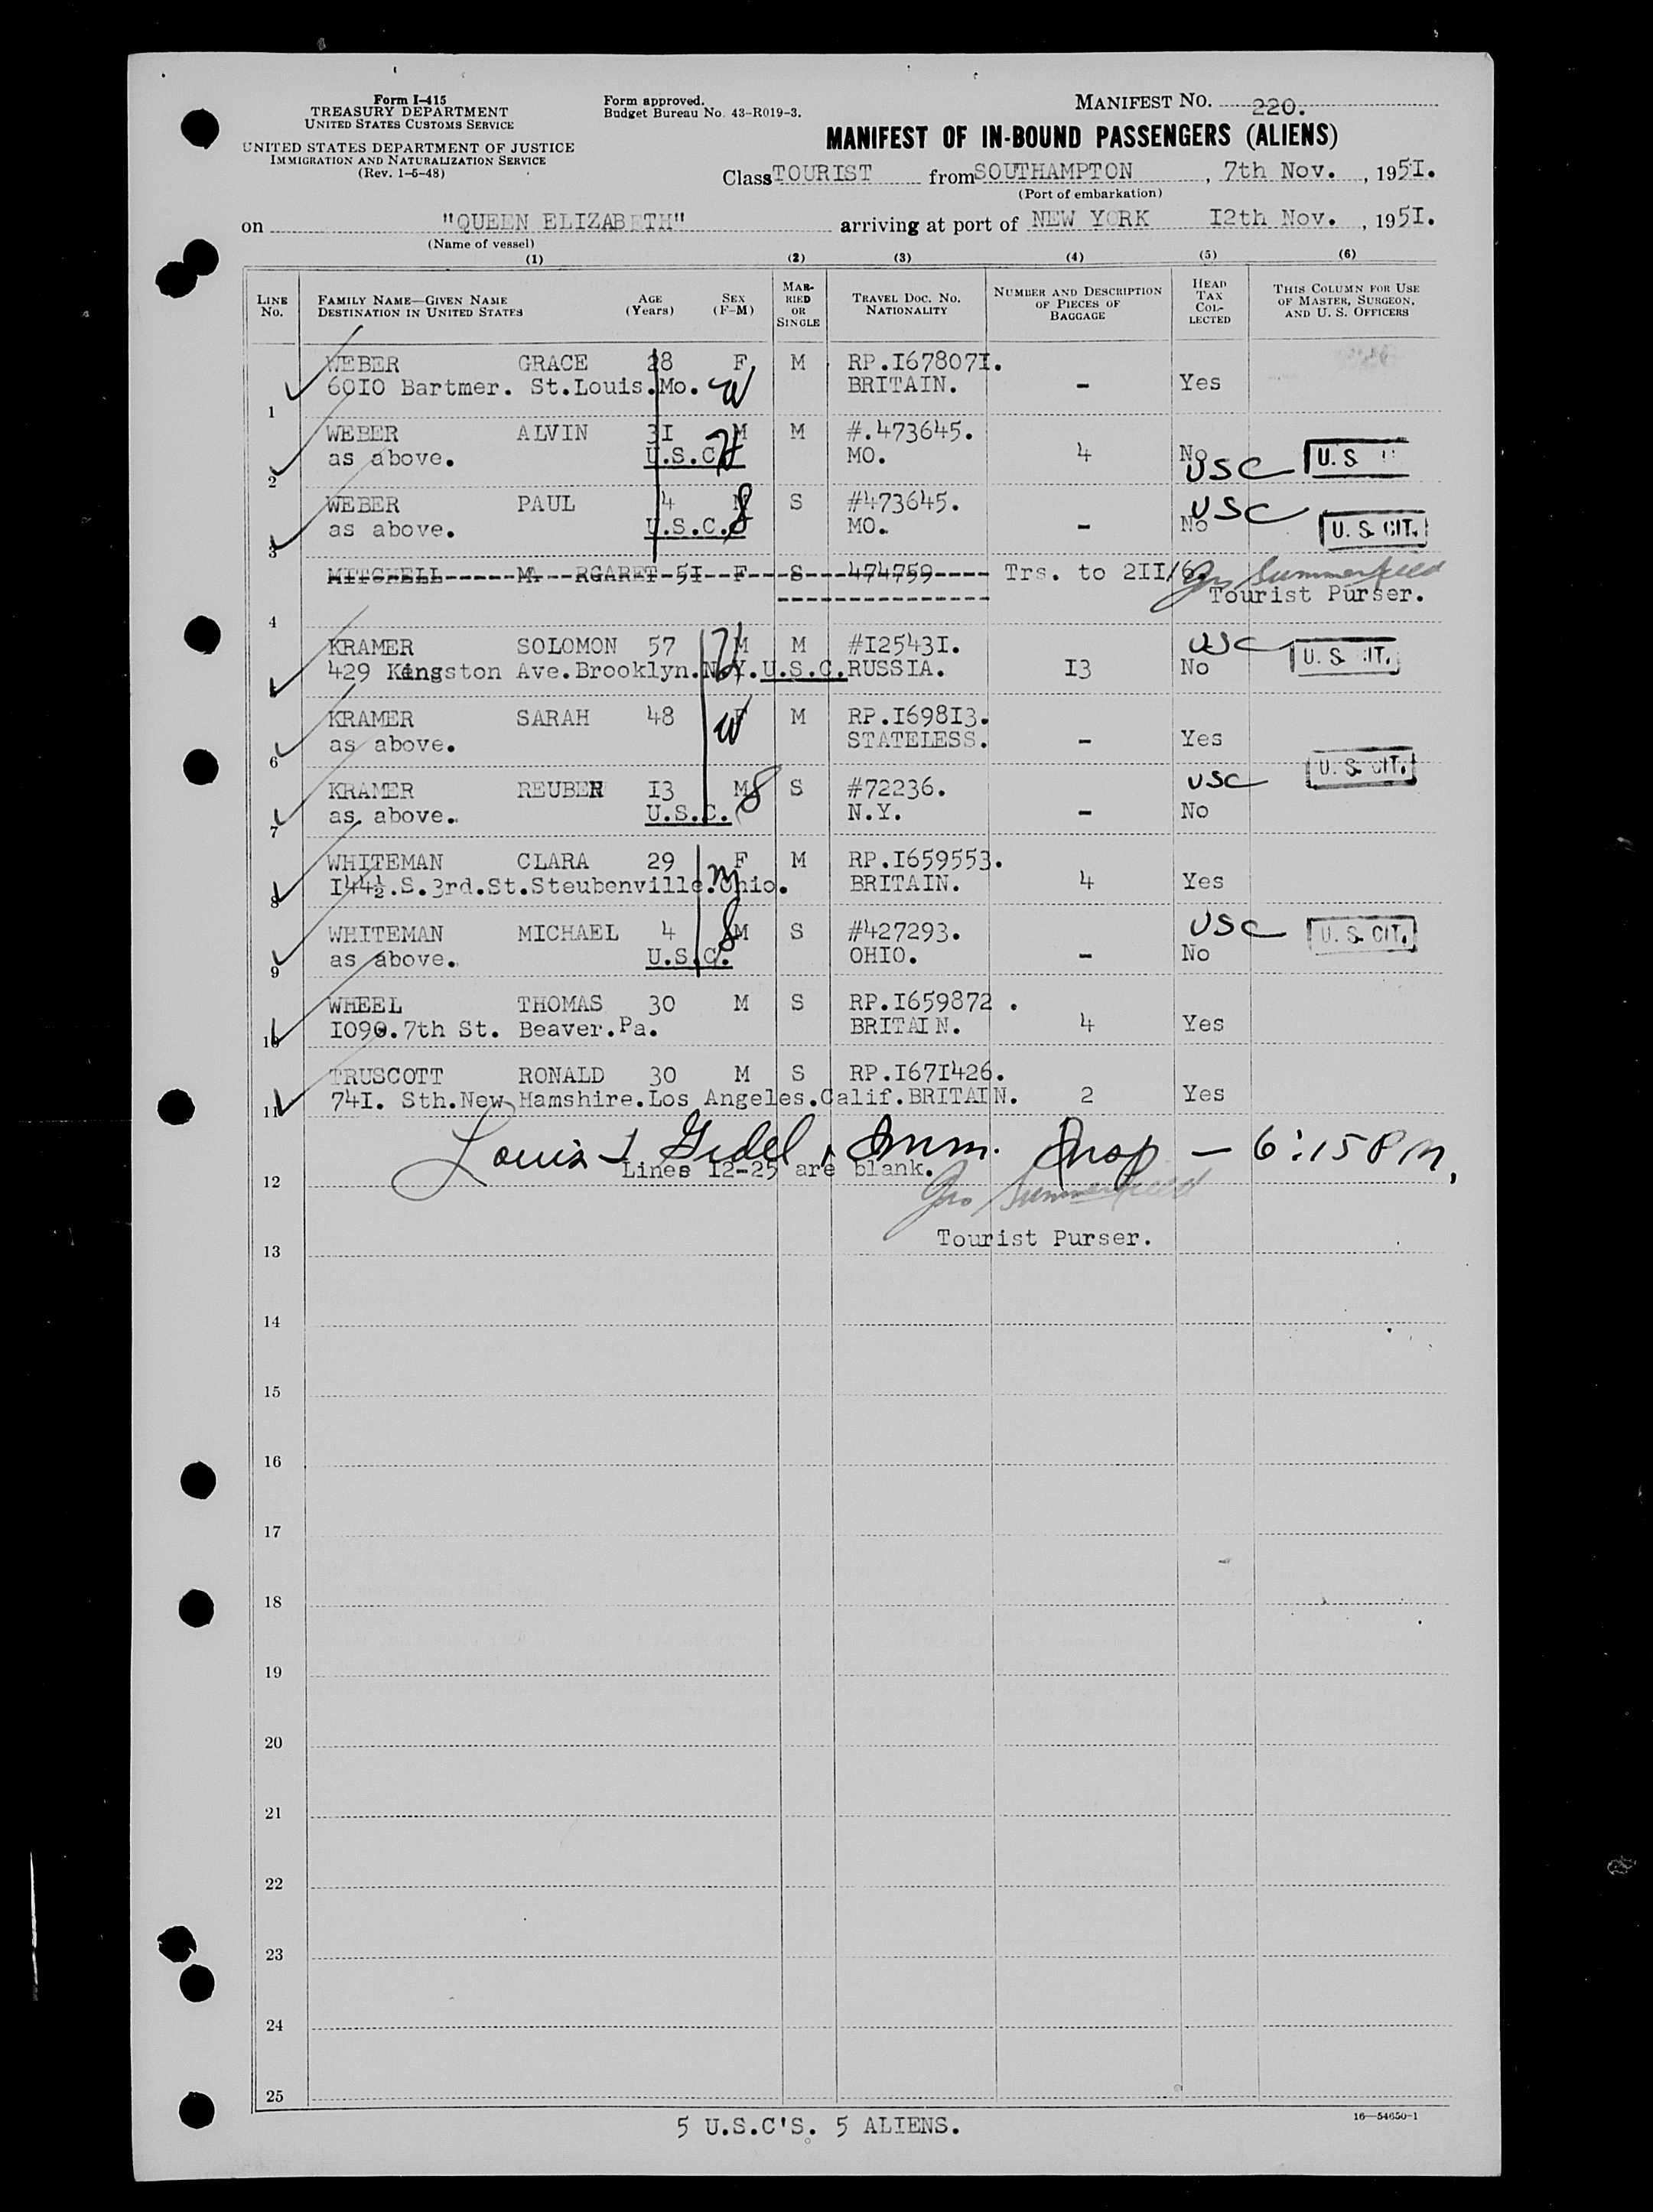 Form I-415
TREASURY DEPARTMENT
UNITED STATES CUSTOMS SERVICE
UNITED STATES DEPARTMENT OF JUSTICE
IMMIGRATION AND NATURALIZATION SERVICE
(Rev. 1-5-48)
Form approved.
Budget Bureau No. 43-R019-3.
MANIFEST NO. 220.
MANIFEST OF IN-BOUND PASSENGERS (ALIENS)
Class TOURIST from SOUTHAMPTON, 7th Nov., 1951.
(Port of embarkation)
on "QUEEN ELIZABETH" arriving at port of NEW YORK 12th Nov., 1951.
(Name of vessel)
(1) (2) (3) (4) (5) (6)
LINE No. FAMILY NAME—GIVEN NAME DESTINATION IN UNITED STATES AGE (Years) SEX (F-M) MARRIED OR SINGLE TRAVEL DOC. NO. NATIONALITY NUMBER AND DESCRIPTION OF PIECES OF BAGGAGE HEAD TAX COLLECTED THIS COLUMN FOR USE OF MASTER, SURGEON, AND U. S. OFFICERS
WEBER GRACE 28 F M RP.I678071.
1 6010 Bartmer. St.Louis.Mo. W BRITAIN. - Yes
WEBER ALVIN 31 M M #.473645.
2 as above. U.S.C. MO. 4 No USC U.S
WEBER PAUL 4 M S #473645. USC
3 as above. U.S.C. MO. - No U.S. CIT.
4 MITCHELL------MA--RGARET-51--F---S---474759---- Trs. to 211/6. Jno Summerfield
Tourist Purser.
KRAMER SOLOMON 57 M M #125431. USC U.S. CIT.
429 Kingston Ave.Brooklyn.N.Y.U.S.C.RUSSIA. 13 No
KRAMER SARAH 48 F W M RP.I69813.
6 as above. STATELESS. - Yes
KRAMER REUBEN 13 M S #72236. USC U.S. CIT.
7 as above. U.S.C. N.Y. - No
WHITEMAN CLARA 29 F M RP.I659553.
8 144½.S.3rd.St.Steubenville.Ohio. BRITAIN. 4 Yes
WHITEMAN MICHAEL 4 M S #427293. USC U.S. CIT.
9 as above. U.S.C. OHIO. - No
WHEEL THOMAS 30 M S RP.I659872 .
10 1090.7th St. Beaver.Pa. BRITAIN. 4 Yes
TRUSCOTT RONALD 30 M S RP.I671426.
11 741. Sth.New Hamshire.Los Angeles.Calif.BRITAIN. 2 Yes
Louis Imm. Insp - 6:15 PM.
12 Lines 12-25 are blank.
Jno Summerfield
13 Tourist Purser.
14
15
16
17
18
19
20
21
22
23
24
25
5 U.S.C'S. 5 ALIENS.
16—54650-1